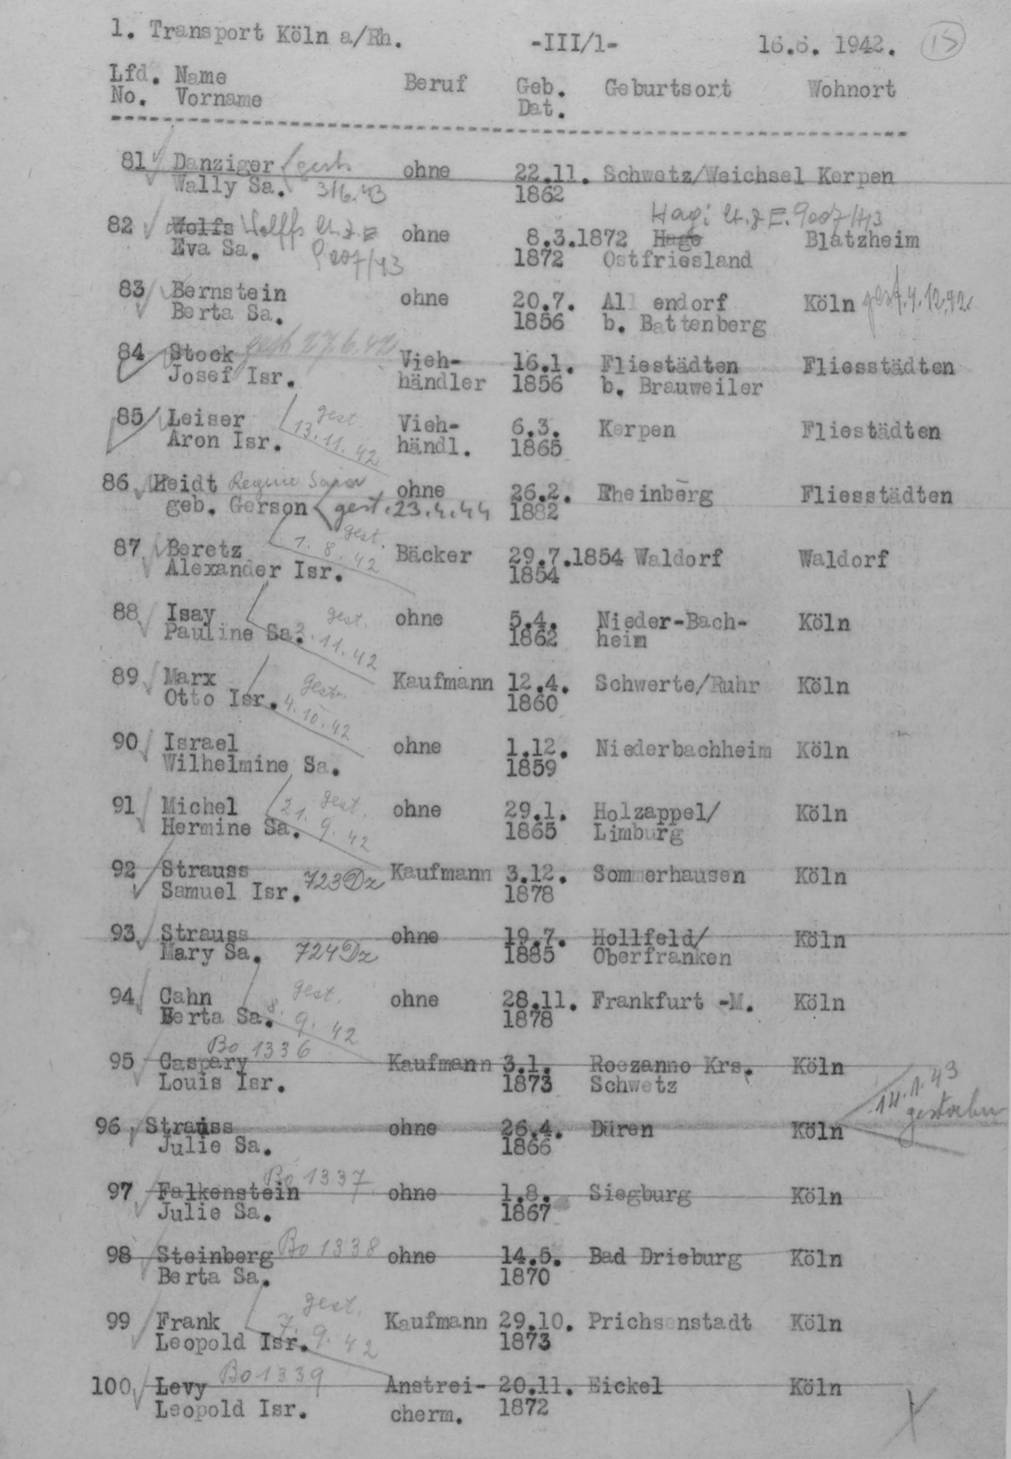 1. Transport Köln a/Rh. -III/1- 16.6. 1942. 15
Lfd. Name Beruf Geb. Geburtsort Wohnort
No. Vorname Dat.
81 Danziger gest. ohne 22.11. Schwetz/Weichsel Kerpen
Wally Sa. 3/6.43 1862
Hagi lt. z E. 9007/43
82 Wolfs Wolffs lt. z E ohne 8.3.1872 Hage Blatzheim
Eva Sa. 9007/43 1872 Ostfriesland
83 Bernstein ohne 20.7. Allendorf Köln gest. 4.12.42
Berta Sa. 1856 b. Battenberg
84 Stock gest 27.6.42 Vieh- 16.1. Fliestädten Fliesstädten
Josef Isr. händler 1856 b. Brauweiler
85 Leiser gest. Vieh- 6.3. Kerpen Fliestädten
Aron Isr. 13.11.42 händl. 1865
86 Heidt Regine Sara ohne 26.2. Rheinberg Fliesstädten
geb. Gerson gest. 23.4.44 1882
87 Beretz gest. Bäcker 29.7.1854 Waldorf Waldorf
Alexander Isr. 1.8.42 1854
88 Isay gest. ohne 5.4. Nieder-Bach- Köln
Pauline Sa. 11.42 1862 heim
89 Marx gest. Kaufmann 12.4. Schwerte/Ruhr Köln
Otto Isr. 4.10.42 1860
90 Israel ohne 1.12. Niederbachheim Köln
Wilhelmine Sa. 1859
91 Michel gest. ohne 29.1. Holzappel/ Köln
Hermine Sa. 21.9.42 1865 Limburg
92 Strauss Kaufmann 3.12. Sommerhausen Köln
Samuel Isr. 723 Dz 1878
93 Strauss ohne 19.7. Hollfeld/ Köln
Mary Sa. 724 Dz 1885 Oberfranken
94 Cahn gest. ohne 28.11. Frankfurt -M. Köln
Berta Sa. 8.9.42 1878
Bo 1336
95 Caspary Kaufmann 3.1. Roezanno Krs. Köln
Louis Isr. 1873 Schwetz
14.1.43
gestorben
96 Strauss ohne 26.4. Düren Köln
Julie Sa. 1866
Bo 1337
97 Falkenstein ohne 1.8. Siegburg Köln
Julie Sa. 1867
98 Steinberg Bo 1338 ohne 14.5. Bad Drieburg Köln
Berta Sa. 1870
99 Frank gest. Kaufmann 29.10. Prichsenstadt Köln
Leopold Isr. 7.9.42 1873
100 Levy Bo 1339 Anstrei- 20.11. Eickel Köln
Leopold Isr. cherm. 1872